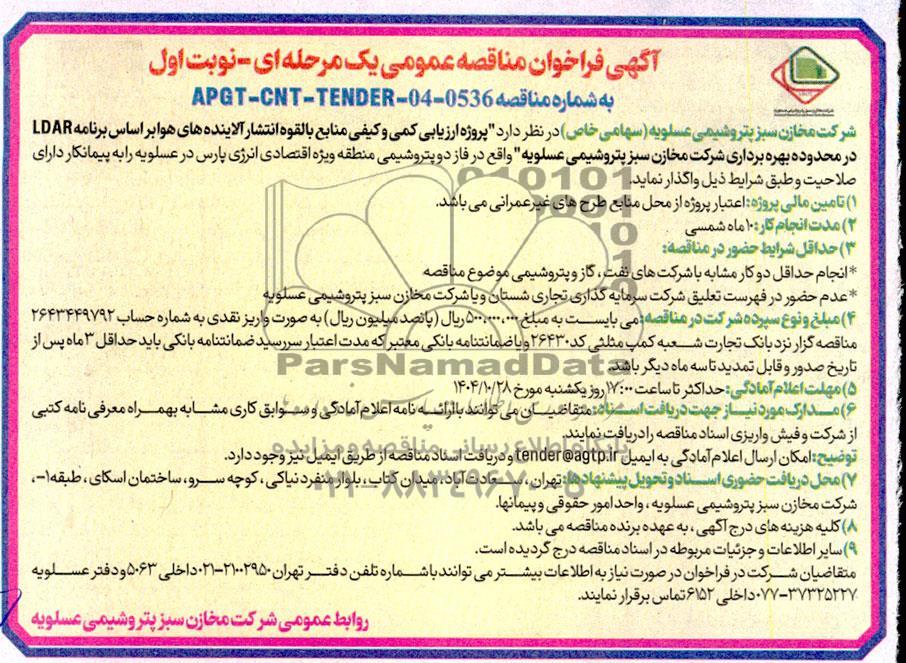 آگهی فراخوان مناقصه عمومی یک مرحله ای - نوبت اول
به شماره مناقصه APGT-CNT-TENDER-04-0536
شرکت مخازن سبز پتروشیمی عسلویه (سهامی خاص) در نظر دارد "پروژه ارزیابی کمی و کیفی منابع بالقوه انتشار آلاینده های هوا بر اساس برنامه LDAR
در محدوده بهره برداری شرکت مخازن سبز پتروشیمی عسلویه" واقع در فاز دو پتروشیمی منطقه ویژه اقتصادی انرژی پارس در عسلویه را به پیمانکار دارای
صلاحیت و طبق شرایط ذیل واگذار نماید.
۱) تامین مالی پروژه: اعتبار پروژه از محل منابع طرح های غیرعمرانی می باشد.
۲) مدت انجام کار: ۱۰ ماه شمسی
۳) حداقل شرایط حضور در مناقصه:
*انجام حداقل دو کار مشابه با شرکت های نفت، گاز و پتروشیمی موضوع مناقصه
*عدم حضور در فهرست تعلیق شرکت سرمایه گذاری تجاری شستان و یا شرکت مخازن سبز پتروشیمی عسلویه
۴) مبلغ و نوع سپرده شرکت در مناقصه: می بایست به مبلغ ۵۰۰،۰۰۰،۰۰۰ ریال (پانصد میلیون ریال) به صورت واریز نقدی به شماره حساب ۲۶۴۳۴۴۹۷۹۲
مناقصه گزار نزد بانک تجارت شعبه کمپ مثلثی کد ۲۶۴۳۰ و یا ضمانتنامه بانکی معتبر که مدت اعتبار سررسید ضمانتنامه بانکی باید حداقل ۳ ماه پس از
تاریخ صدور و قابل تمدید تا سه ماه دیگر باشد.
۵) مهلت اعلام آمادگی: حداکثر تا ساعت ۱۷:۰۰ روز یکشنبه مورخ ۱۴۰۴/۱۰/۲۸
۶) مدارک مورد نیاز جهت دریافت اسناد: متقاضیان می توانند با ارائه نامه اعلام آمادگی و سوابق کاری مشابه بهمراه معرفی نامه کتبی
از شرکت و فیش واریزی اسناد مناقصه را دریافت نمایند
توضیح: امکان ارسال اعلام آمادگی به ایمیل tender@agtp.ir و دریافت اسناد مناقصه از طریق ایمیل نیز وجود دارد.
۷) محل دریافت حضوری اسناد و تحویل پیشنهادها: تهران، سعادت آباد، میدان کتاب، بلوار منفرد نیاکی، کوچه سرو، ساختمان اسکای، طبقه ۱-،
شرکت مخازن سبز پتروشیمی عسلویه، واحد امور حقوقی و پیمانها.
۸) کلیه هزینه های درج آگهی، به عهده برنده مناقصه می باشد.
۹) سایر اطلاعات و جزئیات مربوطه در اسناد مناقصه درج گردیده است.
متقاضیان شرکت در فراخوان در صورت نیاز به اطلاعات بیشتر می توانند با شماره تلفن دفتر تهران ۲۱۰۰۲۹۵۰-۰۲۱ داخلی ۵۰۶۳ و دفتر عسلویه
۰۷۷-۳۷۳۲۵۲۲۷ داخلی ۶۱۵۲ تماس برقرار نمایند.
روابط عمومی شرکت مخازن سبز پتروشیمی عسلویه
ParsNamadData
پایگاه اطلاع رسانی مناقصه و مزایده